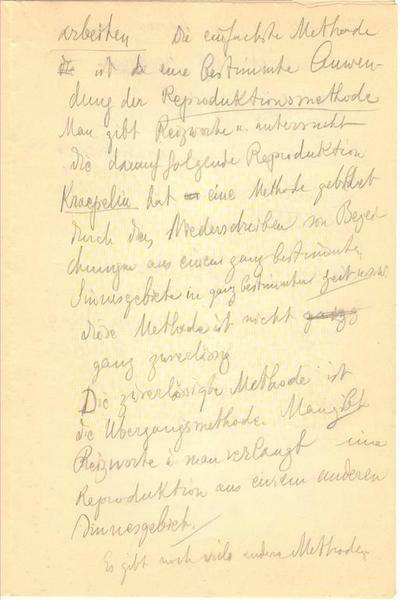 arbeiten Die einfachste Methode
ist die eine bestimmte Anwen-
dung der Reproduktionsmethode
Man gibt Reizworte u. untersucht
die darauf folgende Reproduktion
Kraepelin hat eine Methode gebildet
durch das Niederschreiben von Bezei
chnungen aus einem ganz bestimmten
Sinnesgebiete in ganz bestimmter
diese Methode ist nicht
ganz zuverlässig
Die zuverlässigste Methode ist
die Übergangsmethode. Man gibt
Reizworte u man verlangt eine
Reproduktion aus einem anderen
Sinnesgebiet.
Es gibt noch viele andere Methoden